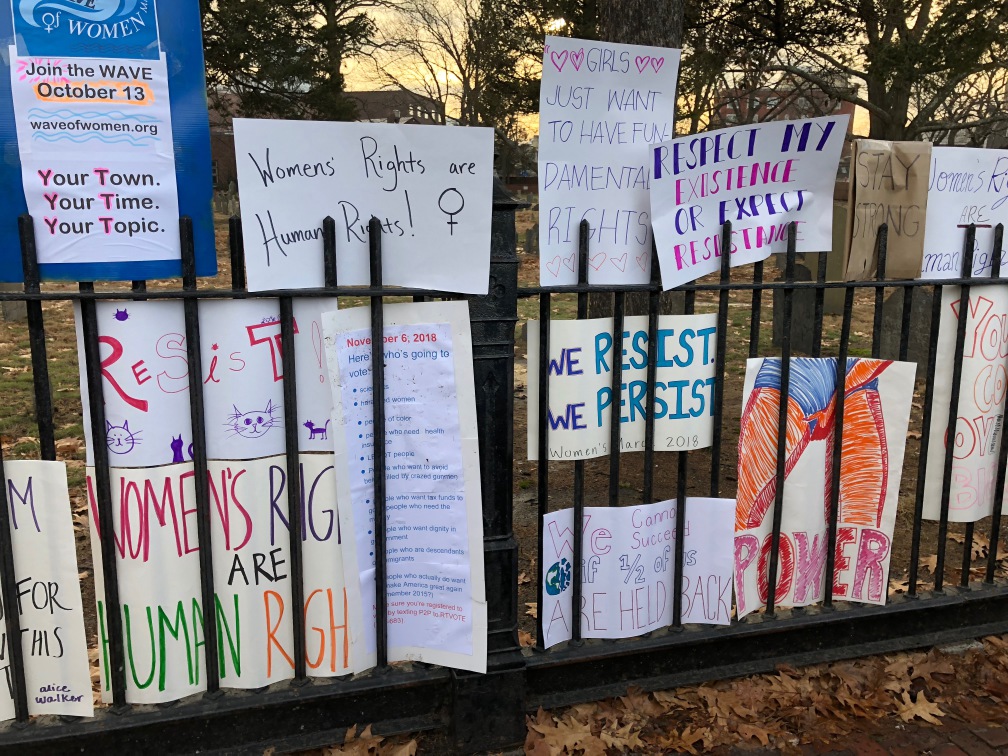 of WOMEN
Join the WAVE
October 13
waveofwomen.org
Your Town.
Your Time.
Your Topic.
Womens' Rights are
Human Rights!
GIRLS
JUST WANT
TO HAVE FUN-
DAMENTAL
RIGHTS
RESPECT MY
EXISTENCE
OR EXPECT
RESISTANCE
STAY
STRONG
Women's
ARE
ReSisT!
WOMEN'S RIG
ARE
HUMAN RIGH
November 6, 2018
who's going to
vote
women
of color
who need health
people
who want to avoid
killed by crazed gunmen
people who want tax funds to
people who need the
people who want dignity in
people who are descendants
immigrants
people who actually do want
America great again
2015?)
sure you're registered to
by texting P2P to RTVOTE
WE RESIST.
WE PERSIST
Women's March 2018
We Cannot
Succeed
if 1/2 of us
ARE HELD BACK
POWER
M
FOR
THIS
alice
walker
YOU